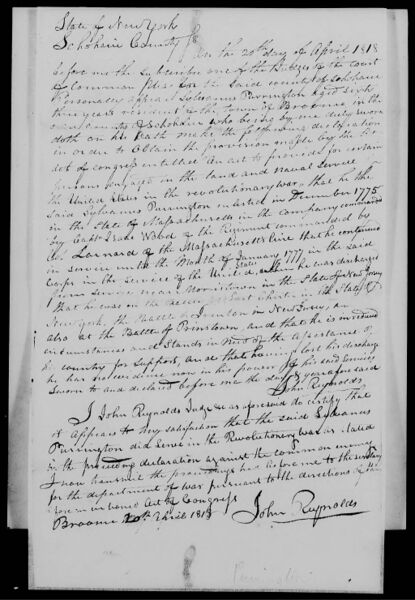 State of New York
Schoharie County Ss
On the 20th day of April 1818
before me the Subscriber one of the Judges of the Court
of Common pleas for the Said county of Schoharie
Personally appeared Sylvanus Purrington Aged Sixty
three years resident in the Town of Broome in the
said county of Schoharie who being by me duly Sworn
doth on his Oath make the following declaration
in order to Obtain the provision made by the late
act of congress entitled An act to provide for certain
persons engaged in the land and Naval Service of
the United States in the revolutionary war, that he the
said Sylvanus Purrington enlisted in December 1775
in the State of Massachusetts in the Company commanded
by Capt Isaac Wood of the Regiment commanded by
Col Larnard of the Massachusetts line that he continued
in service until the Month of January 1777 in the said
Corps in the Service of the United States when he was discharged
from service near Morristown in the State of New Jersey
that he was in the at in the State of
New York, the Battle of Trenton in New Jersey, an
also at the Battle of Princetown, and that he is in reduced
circumstances and Stands in need of the assistance of
his country for Support, and that having lost his discharge
he has no evidence now in his power of his said Services
Sworn to and declared before me the day & year aforesaid
John Reynolds
I John Reynolds Judge &c as aforesaid do certify that
it Appears to my satisfaction that the said Sylvanus
Purrington did serve in the Revolutionary War as stated
in the preceding declaration against the common enemy
I now transmit the proceedings had before me to the secretary
for the department of war pursuant to the directions of the
aforementioned Act of Congress
Broome 20th April 1818
John Reynolds
Purrington